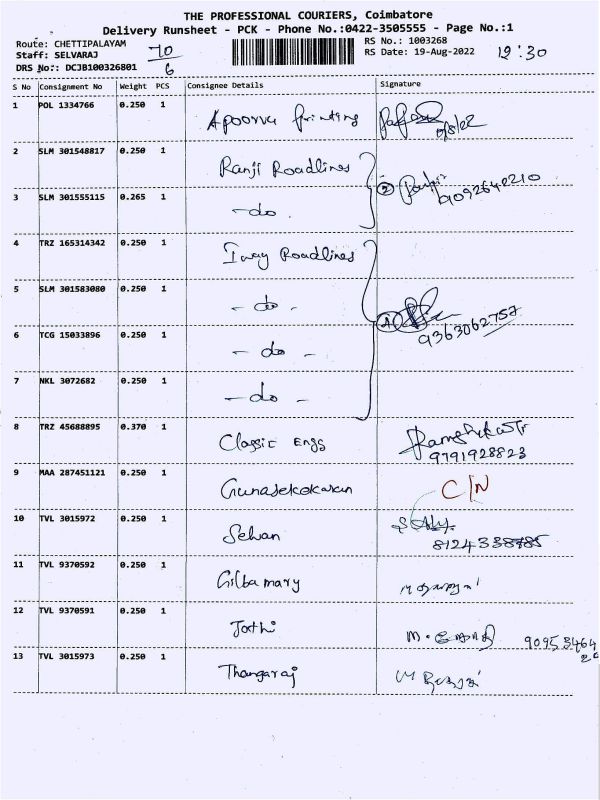 THE PROFESSIONAL COURIERS, Coimbatore
Delivery Runsheet - PCK - Phone No.:0422-3505555 - Page No.:1
Route: CHETTIPALAYAM 70 RS No.: 1003268
Staff: SELVARAJ 6 RS Date: 19-Aug-2022 12:30
DRS No:: DCJB100326801
S No Consignment No Weight PCS Consignee Details Signature
1 POL 1334766 0.250 1 Apoorva Printing
2 SLM 301548817 0.250 1 Ranji Roadlines
3 SLM 301555115 0.265 1 -do. 2 9092642210
4 TRZ 165314342 0.250 1 Iway Roadlines
5 SLM 301583080 0.250 1 - do - 4
6 TCG 15033896 0.250 1 - do - 9363062757
7 NKL 3072682 0.250 1 - do -
8 TRZ 45688895 0.370 1 Classic Engg
9791928823
9 MAA 287451121 0.250 1 Gunasekokaran C/N
10 TVL 3015972 0.250 1 Selvan
11 TVL 9370592 0.250 1 Gilba mary
12 TVL 9370591 0.250 1 Jothi 90953464
13 TVL 3015973 0.250 1 Thangaraj